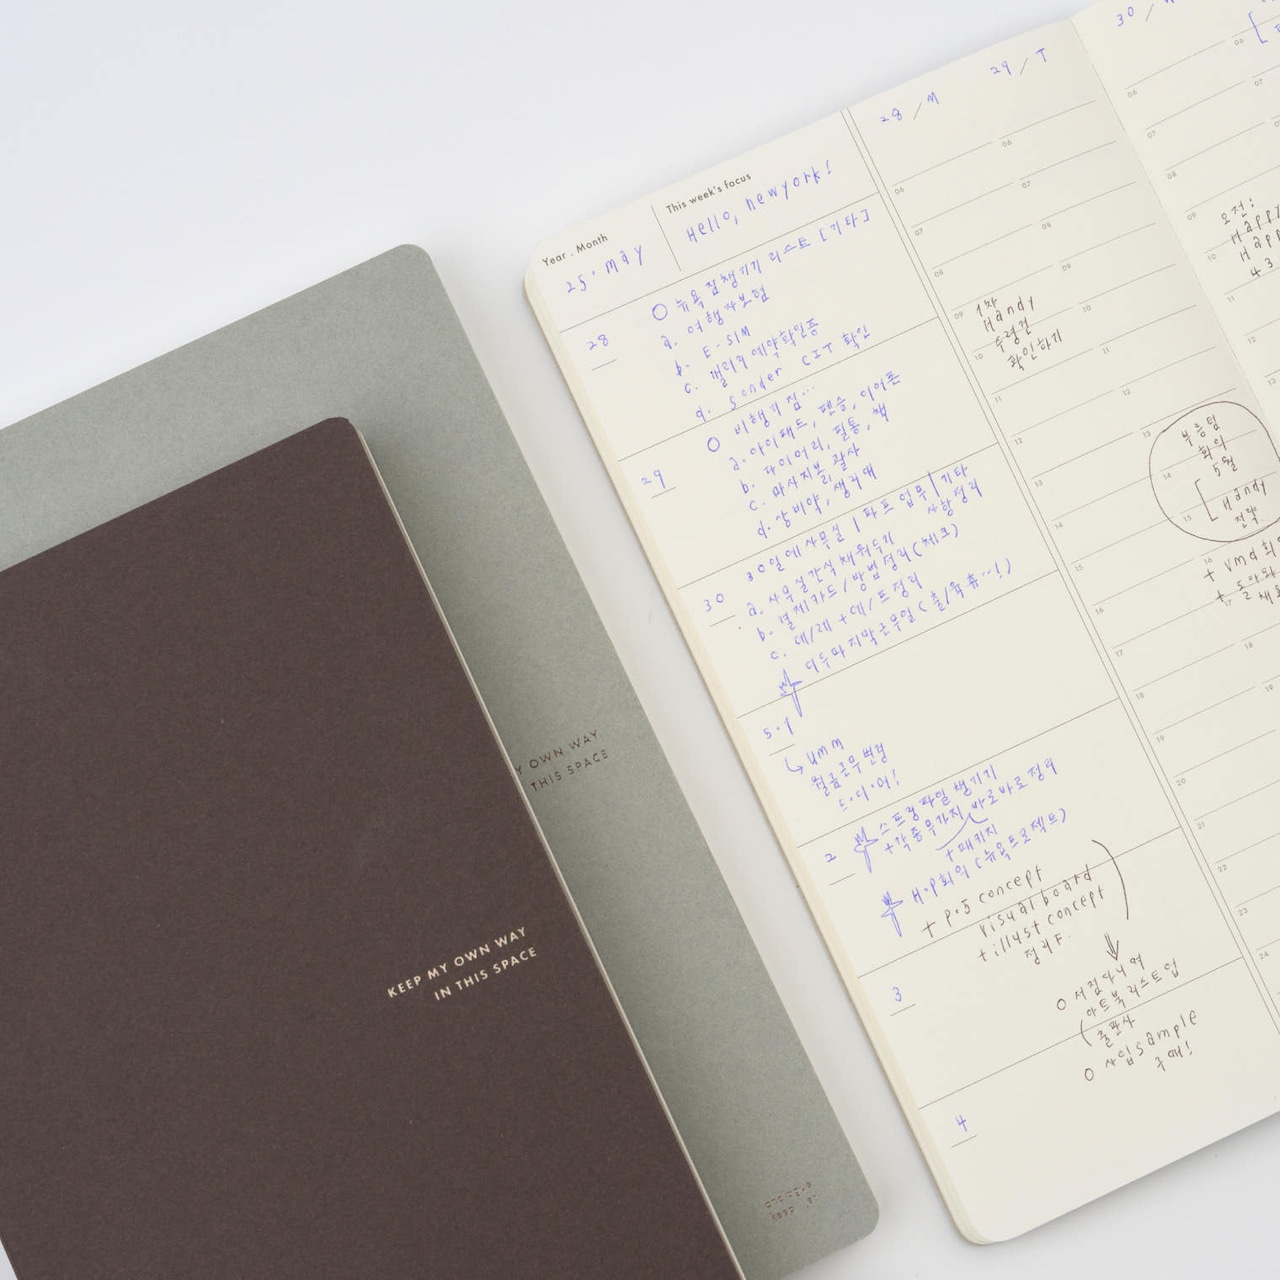 KEEP MY OWN WAY
IN THIS SPACE
Y OWN WAY
THIS SPACE
Year . Month
25. May
This week's focus
Hello, newyork!
28
O 뉴욕 짐챙기기 리스트 [기타]
a. 여행자보험
b. E-SIM
c. 갤러리 예약확인증
d. Sonder CIT 확인
29
O 비행기 짐...
a. 아이패드, 펜슬, 이어폰
b. 다이어리, 필통, 책
c. 마사지볼, 괄사
d. 상비약, 생리대
30
30일에 사무실 | 파트 업무 | 기타
사항정리
a. 사무실간식 채워두기
b. 결제카드/방법정리 (체크)
c. 데/레 + 데/프 정리
지막근무일
5.1
umm
월급근무변경
드.디.어!
2
스트링파일 챙기기
+각종무가지 바로바로 정리
+ 패키지
H.P회의 (뉴욕프로젝트)
+ P.5 concept
visual board
+ illust concept
정리
3
O 서점다니며
아트북 리스트업
출판사
O 사입 sample
구매!
4
28 / M
06
07
08
09
10
11
12
13
14
15
16
17
18
19
20
21
22
23
24
1차
Handy
수령건
확인하기
29 / T
06
07
08
09
10
11
12
13
14
15
16
17
18
19
부릉팀
회의
5월
[ Handy
전략
+ vmd
30 /
06
07
08
09
10
11
12
13
오전:
43